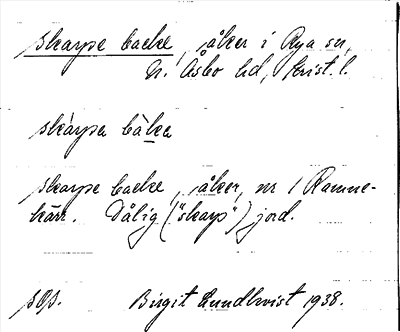 skarpe backe, åker i Rya sn,
N. Åsbo hd, Krist. l.
skarpa baka
skarpe backe, åker, nr 1 Ramne-
kärr. Dålig ("skarp") jord.
sOp. Birgit Lundkvist 1938.